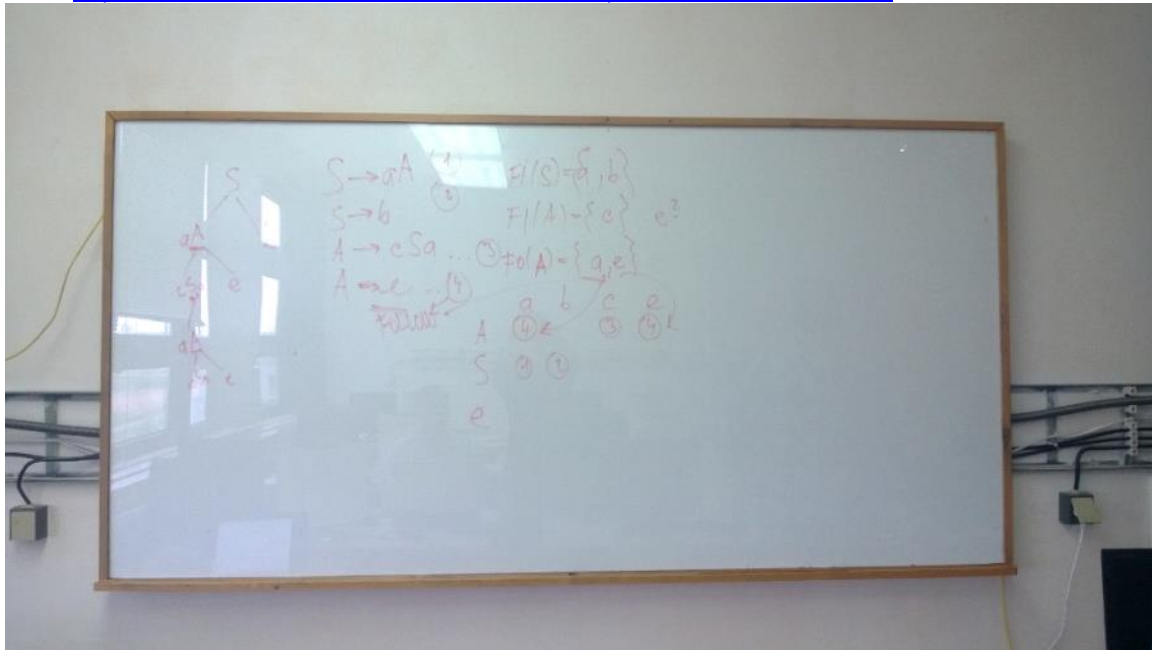 S
aA
e
aA
e
S → aA (1)
S → b (2)
A → cSa ... (3)
A → e ... (4)
FI(S) = {a, b}
FI(A) = {c} e?
FO(A) = {a, e}
a b c e
A (4) (3) (4)
S (1) (2)
e